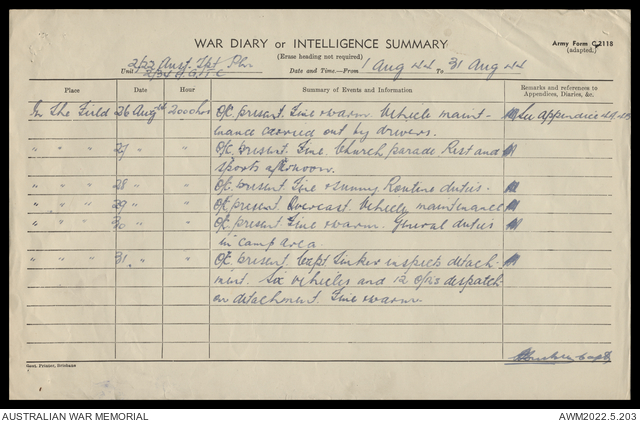 WAR DIARY or INTELLIGENCE SUMMARY
Army Form C 2118
(adapted.)
(Erase heading not required)
2/22 Aust. Tpt Pln
Unit
Date and Time—From 1 Aug 44 To 31 Aug 44
Place Date Hour Summary of Events and Information Remarks and references to Appendices, Diaries, &c.
In The Field 26 Aug 44 2000 hrs O/C present. Fine & warm. Vehicle maint- See appendice
nance carried out by drivers.
" " " 27 " " O/C present. Fine. Church parade Rest and
sports afternoon.
" " " 28 " " O/C present. Fine & sunny Routine duties.
" " " 29 " " O/C present Overcast. Vehicle maintenance
" " " 30 " " O/C present. Fine warm. General duties
in camp area.
" " " 31 " " O/C present. Capt inspects detach-
ment. Six vehicles and 12 O/Rs despatch
on detachment. Fine & warm.
Capt
Govt. Printer, Brisbane
AUSTRALIAN WAR MEMORIAL AWM2022.5.203